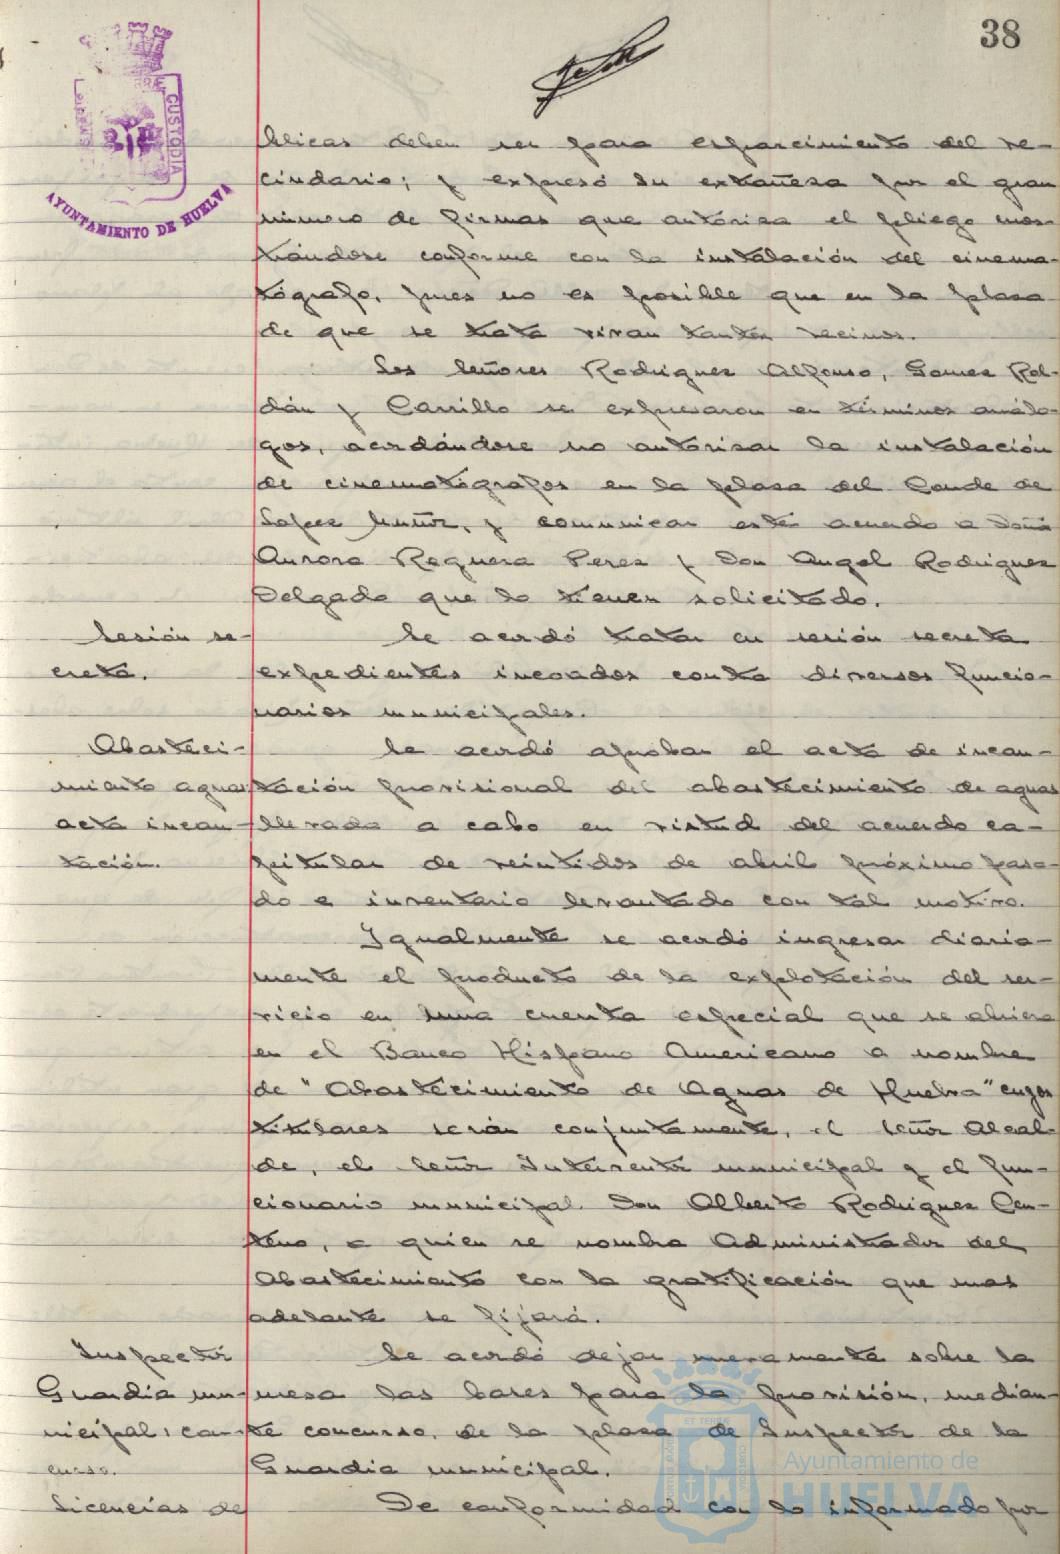 38
AYUNTAMIENTO DE HUELVA
CUSTODIA
blicas deben ser para esparcimiento del ve-
cindario; y expresó su extrañeza por el gran
número de firmas que autoriza el pliego mos-
trándose conforme con la instalación del cinema-
tógrafo, pues no es posible que en la plaza
de que se trata vivan tantos vecinos.
Los señores Rodriguez Alfonso, Gomez Rol-
dán y Carrillo se expresaron en términos análo-
gos, acordándose no autorizar la instalación
de cinematógrafos en la plaza del Conde de
Lopez Muñoz, y comunicar este acuerdo a Doña
Aurora Reguera Perez y Don Angel Rodriguez
Delgado que lo tienen solicitado.
Sesión se-
creta.
Se acordó tratar en sesión secreta
expedientes incoados contra diversos funcio-
narios municipales.
Abasteci-
miento aguas
acta incau-
tación.
Se acordó aprobar el acta de incau-
tación provisional del abastecimiento de aguas
llevada a cabo en virtud del acuerdo ca-
pitular de veintidos de abril próximo pasa-
do e inventario levantado con tal motivo.
Igualmente se acordó ingresar diaria-
mente el producto de la explotación del ser-
vicio en una cuenta especial que se abriera
en el Banco Hispano Americano a nombre
de "Abastecimiento de Aguas de Huelva" cuyos
titulares serán conjuntamente, el señor Alcal-
de, el señor Interventor municipal y el fun-
cionario municipal Don Alberto Rodriguez Cen-
teno, a quien se nombra Administrador del
Abastecimiento con la gratificación que mas
adelante se fijará.
Inspector
Guardia mu-
nicipal, con-
curso.
Se acordó dejar nuevamente sobre la
mesa las bases para la provisión, median-
te concurso, de la plaza de Inspector de la
Guardia municipal.
Licencias de
De conformidad con lo informado por
Ayuntamiento de
HUELVA